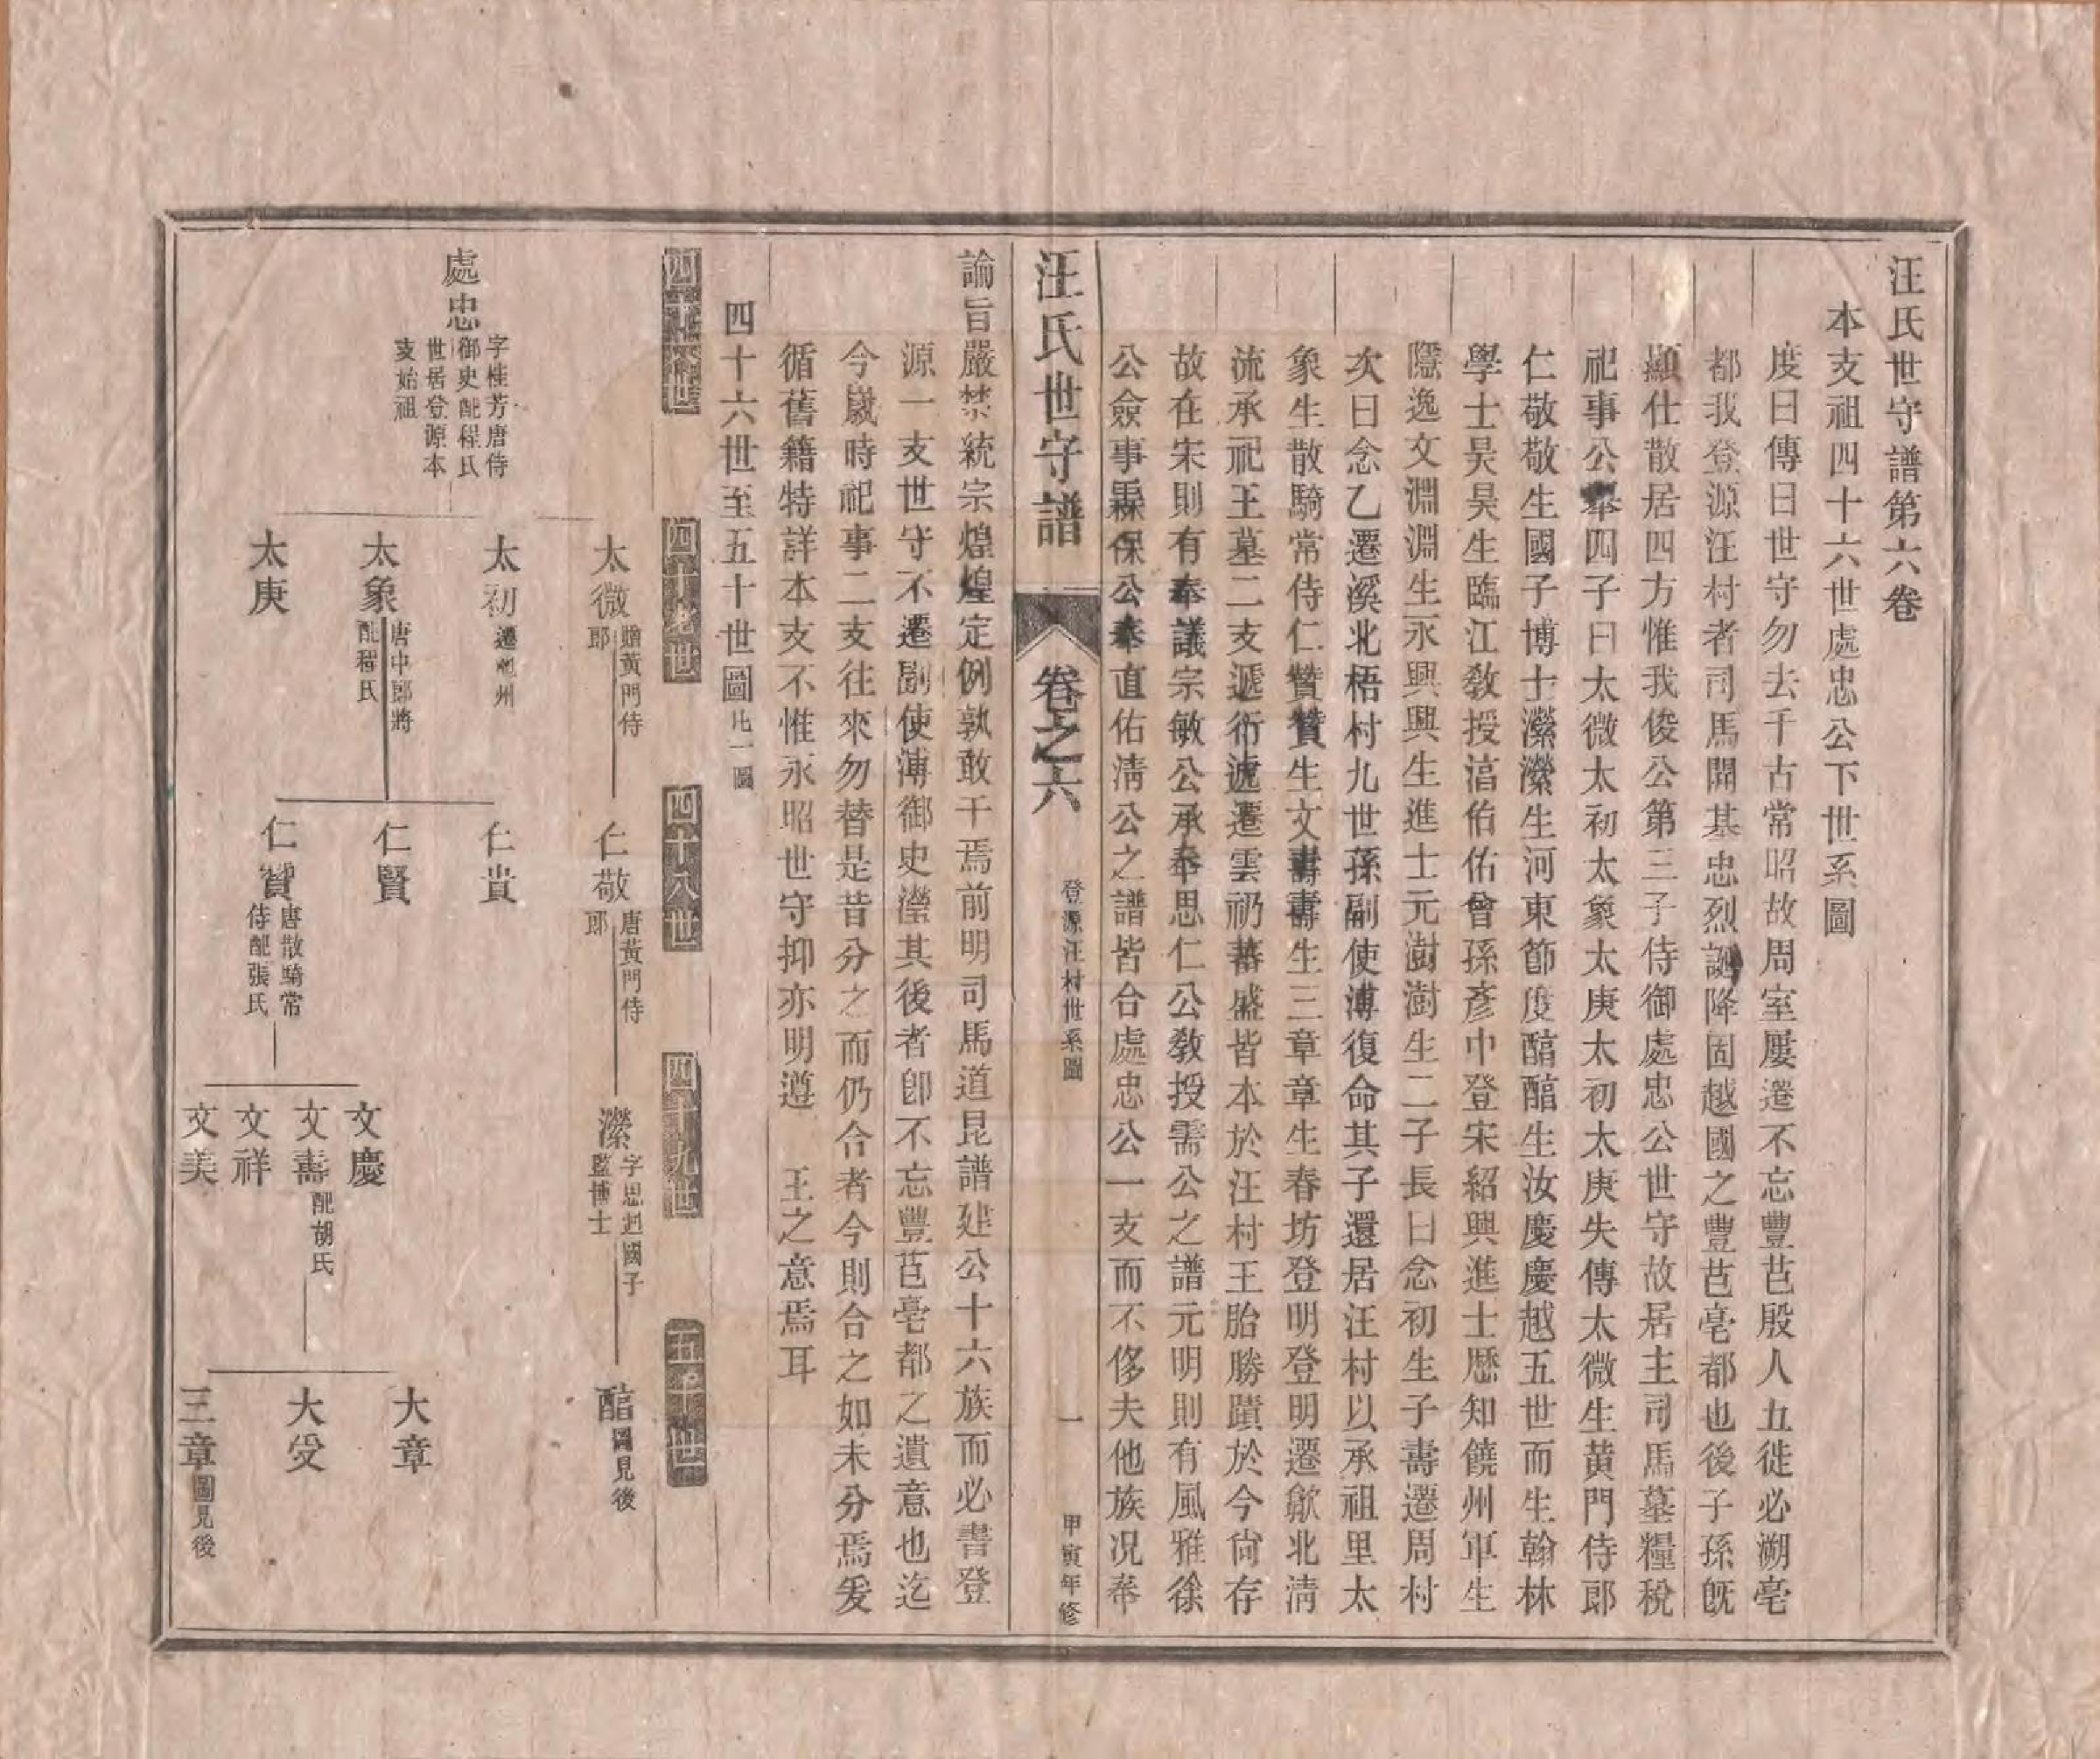 汪氏世守譜第六卷
本支祖四十六世處忠公下世系圖
度曰傳曰世守勿去千古常昭故周室屢遷不忘豐芑殷人五徙必溯亳
都我登源汪村者司馬開基忠烈誕降固越國之豐芑亳都也後子孫旣
顯仕散居四方惟我俊公第三子侍御處忠公世守故居主司馬墓糧稅
祀事公舉四子曰太微太初太象太庚太初太庚失傳太微生黃門侍郎
仁敬敬生國子博士濴濴生河東節度醕醕生汝慶慶越五世而生翰林
學士昊昊生臨江敎授湇佑佑曾孫彥中登宋紹興進士歷知饒州軍生
隱逸文淵淵生永興興生進士元澍澍生二子長曰念初生子壽遷周村
次曰念乙遷溪北梧村九世孫副使溥復命其子還居汪村以承祖里太
象生散騎常侍仁贊贊生文壽壽生三章章生春坊登明登明遷歙北淸
流承祀王墓二支遞衍遞遷雲礽蕃盛皆本於汪村王胎勝蹟於今尙存
故在宋則有奉議宗敏公承奉思仁公敎授需公之譜元明則有風雅徐
公僉事霖保公奉直佑淸公之譜皆合處忠公一支而不侈夫他族况奉
汪氏世守譜 卷之六 登源汪村世系圖 一 甲寅年修
諭旨嚴禁統宗煌煌定例孰敢干焉前明司馬道昆譜建公十六族而必書登
源一支世守不遷副使溥御史瀅其後者卽不忘豐芑亳都之遺意也迄
今歲時祀事二支往來勿替是昔分之而仍合者今則合之如未分焉爰
循舊籍特詳本支不惟永昭世守抑亦明遵 王之意焉耳
四十六世至五十世圖 此一圖
四十六世 四十七世 四十八世 四十九世 五十世
處忠 字桂芳唐侍御史配程氏世居登源本支始祖
太微 贍黃門侍郎
仁敬 唐黃門侍郎
濴 字思迥國子監博士
醕 圖見後
太初 遷亳州
太象 唐中郎將配程氏
太庚
仁貴
仁賢
仁贊 唐散騎常侍配張氏
文慶
文壽 配胡氏
文祥
文美
大章
大受
三章 圖見後